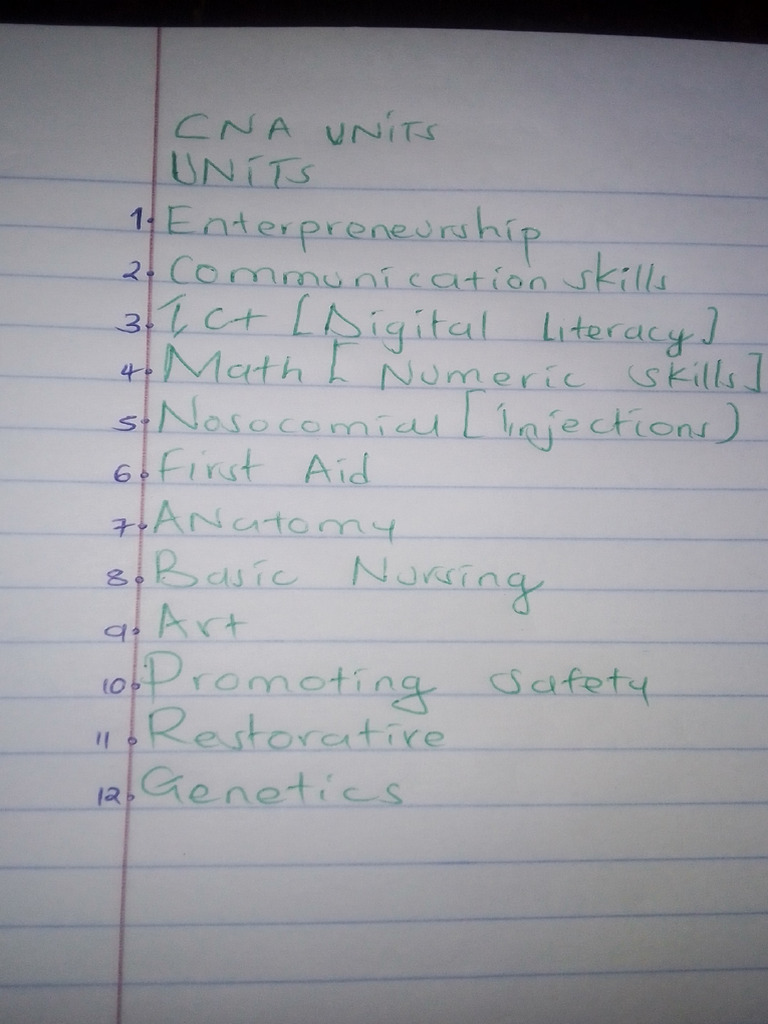 CNA UNITS
UNITS
1. Enterpreneurship
2. Communication skills
3. Ict [Digital Literacy]
4. Math [Numeric skills]
5. Nosocomial [injections)
6. First Aid
7. Anatomy
8. Basic Nursing
9. Art
10. Promoting safety
11. Restorative
12. Genetics